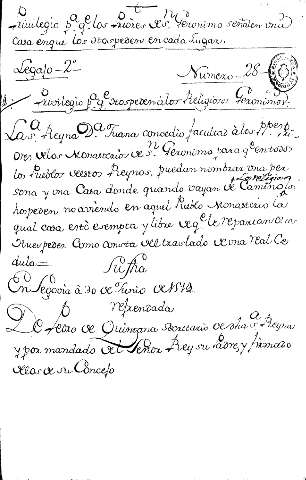 Privilegio pª qe los Priores de Sn Geronimo señalen una
Casa en que los Hospeden en cada Lugar.
Legajo 2º Numero 28
Privilegio pª qe hospeden a los Religiosos Geronimos
La Sª Reyna Dª Juana concedio facultad à los PP. Prio-
res de los Monasterios de Sn Geronimo para qe en todos
los Pueblos de estos Reynos, puedan nombrar una per-
sona y una Casa donde quando vayan de Camino los
Religiosos
hospeden no aviendo en aquel Pueblo Monasterio la
qual casa esté esempta y libre de qe le repartan otros
Huespedes Como consta del traslado de una Real Ce-
dula
Su fha
En Segovia à 30 de Junio de
refrendada
De Pedro de Quintana Secretario de dha Sª Reyna
y por mandado del Señor Rey su Padre, y firmado
de los de su Concejo